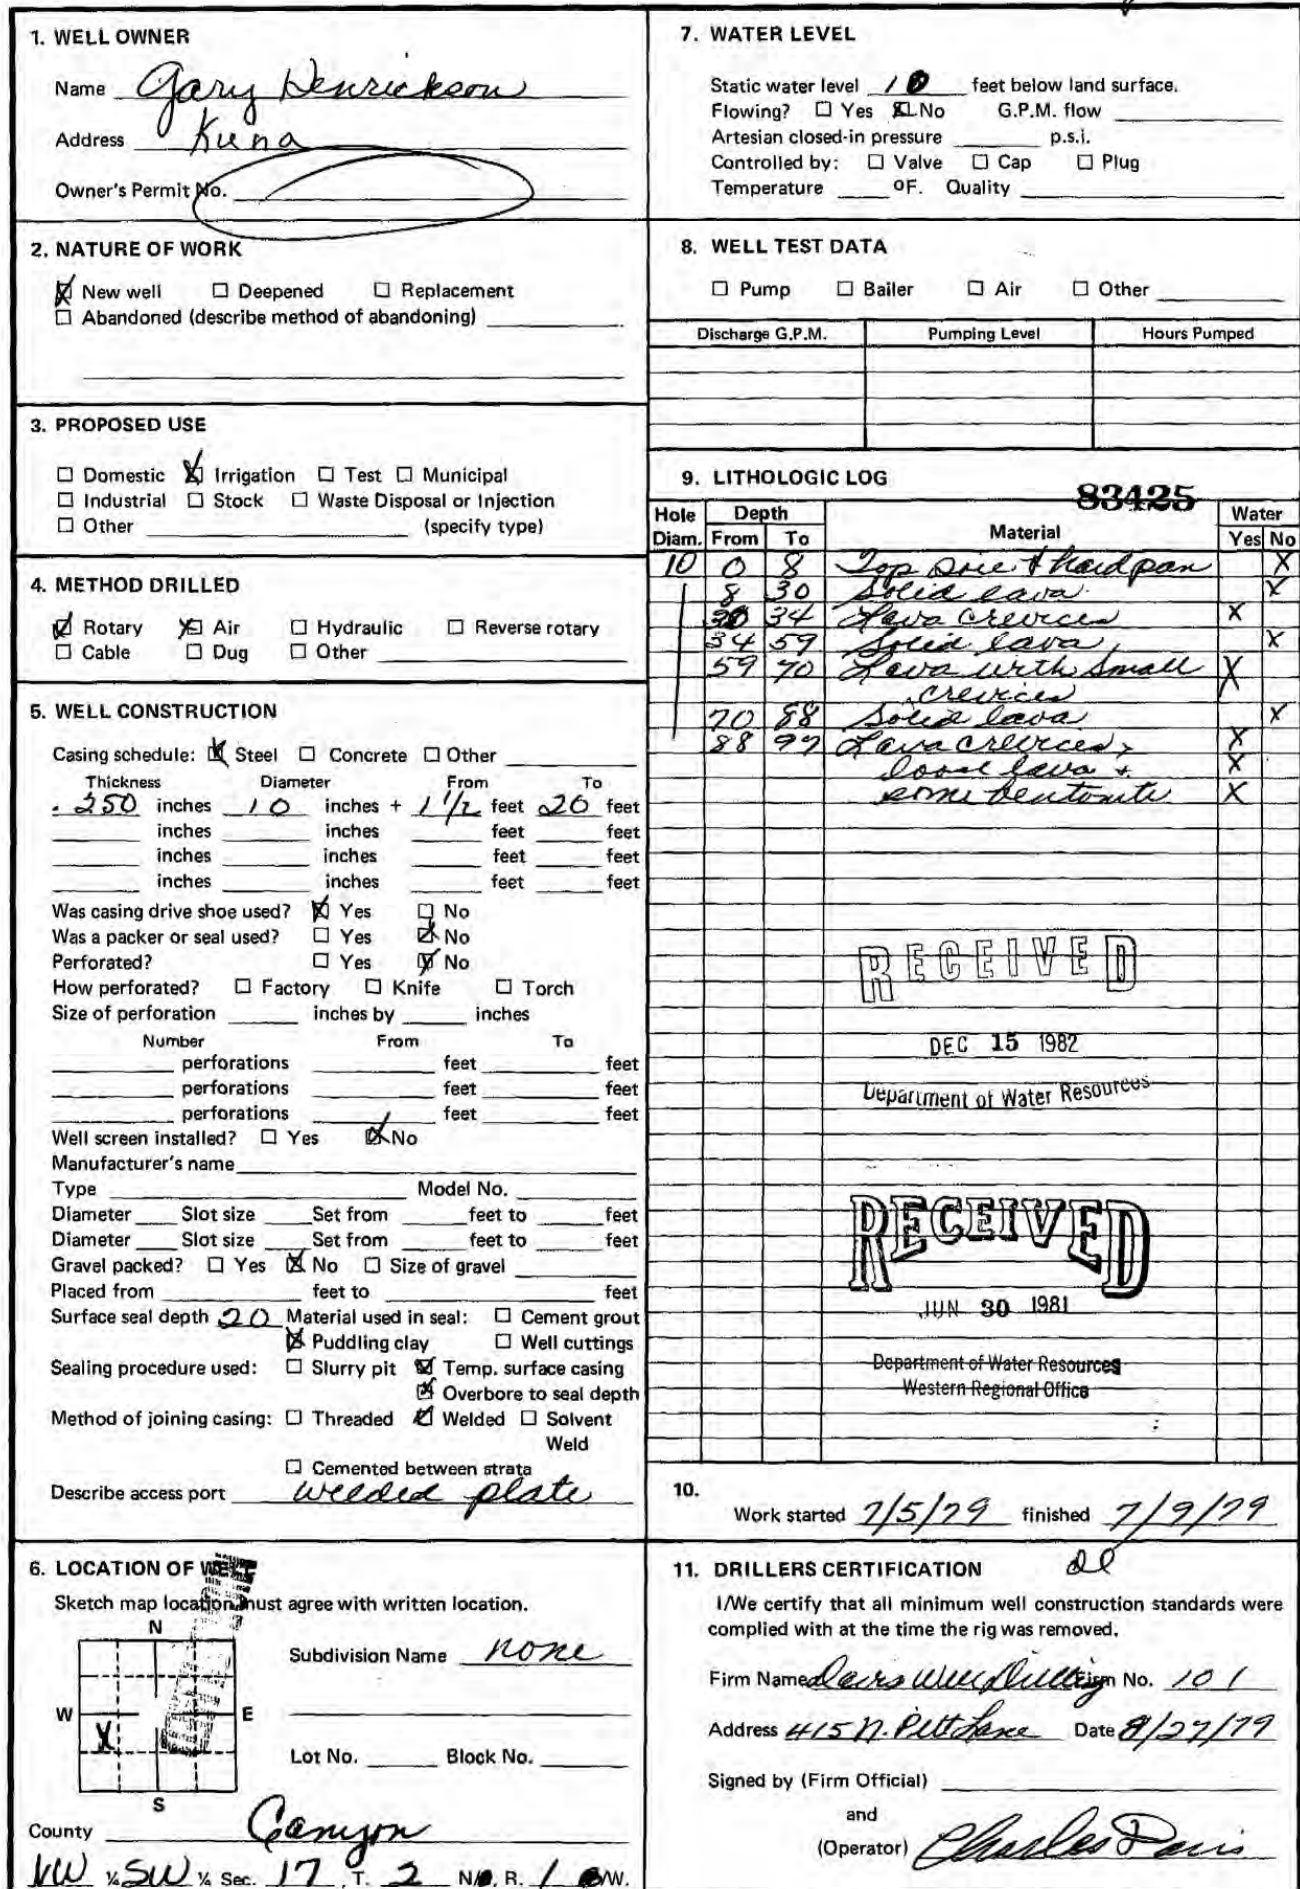 1. WELL OWNER
Name Gary Henrickson
Address Kuna
Owner's Permit No.
2. NATURE OF WORK
☒ New well ☐ Deepened ☐ Replacement
☐ Abandoned (describe method of abandoning)
3. PROPOSED USE
☐ Domestic ☒ Irrigation ☐ Test ☐ Municipal
☐ Industrial ☐ Stock ☐ Waste Disposal or Injection
☐ Other (specify type)
4. METHOD DRILLED
☒ Rotary ☒ Air ☐ Hydraulic ☐ Reverse rotary
☐ Cable ☐ Dug ☐ Other
5. WELL CONSTRUCTION
Casing schedule: ☒ Steel ☐ Concrete ☐ Other
Thickness Diameter From To
.250 inches 10 inches + 1 1/2 feet 20 feet
inches inches feet feet
inches inches feet feet
inches inches feet feet
Was casing drive shoe used? ☒ Yes ☐ No
Was a packer or seal used? ☐ Yes ☒ No
Perforated? ☐ Yes ☒ No
How perforated? ☐ Factory ☐ Knife ☐ Torch
Size of perforation inches by inches
Number From To
perforations feet feet
perforations feet feet
perforations feet feet
Well screen installed? ☐ Yes ☒ No
Manufacturer's name
Type Model No.
Diameter Slot size Set from feet to feet
Diameter Slot size Set from feet to feet
Gravel packed? ☐ Yes ☒ No ☐ Size of gravel
Placed from feet to feet
Surface seal depth 20 Material used in seal: ☐ Cement grout
☒ Puddling clay ☐ Well cuttings
Sealing procedure used: ☐ Slurry pit ☒ Temp. surface casing
☒ Overbore to seal depth
Method of joining casing: ☐ Threaded ☒ Welded ☐ Solvent
Weld
☐ Cemented between strata
Describe access port welded plate
6. LOCATION OF WELL
Sketch map location must agree with written location.
N
W E
X
S
Subdivision Name none
Lot No. Block No.
County Canyon
NW ¼ SW ¼ Sec. 17, T. 2 N/S, R. 1 E/W.
7. WATER LEVEL
Static water level 10 feet below land surface.
Flowing? ☐ Yes ☒ No G.P.M. flow
Artesian closed-in pressure p.s.i.
Controlled by: ☐ Valve ☐ Cap ☐ Plug
Temperature ºF. Quality
8. WELL TEST DATA
☐ Pump ☐ Bailer ☐ Air ☐ Other
Discharge G.P.M. Pumping Level Hours Pumped
9. LITHOLOGIC LOG
83425
Hole Depth Water
Diam. From To Material Yes No
10 0 8 Top soil & hardpan X
8 30 Solid lava X
30 34 Lava crevices X
34 59 Solid lava X
59 70 Lava with small X
crevices
70 88 Solid lava X
88 99 Lava crevices, X
loose lava & X
some bentonite X
RECEIVED
DEC 15 1982
Department of Water Resources
RECEIVED
JUN 30 1981
Department of Water Resources
Western Regional Office
10.
Work started 7/5/79 finished 7/9/79
11. DRILLERS CERTIFICATION
I/We certify that all minimum well construction standards were
complied with at the time the rig was removed.
Firm Name Davis Well Drilling Firm No. 101
Address 415 N. Pitt Lane Date 8/27/79
Signed by (Firm Official)
and
(Operator) Charles Davis